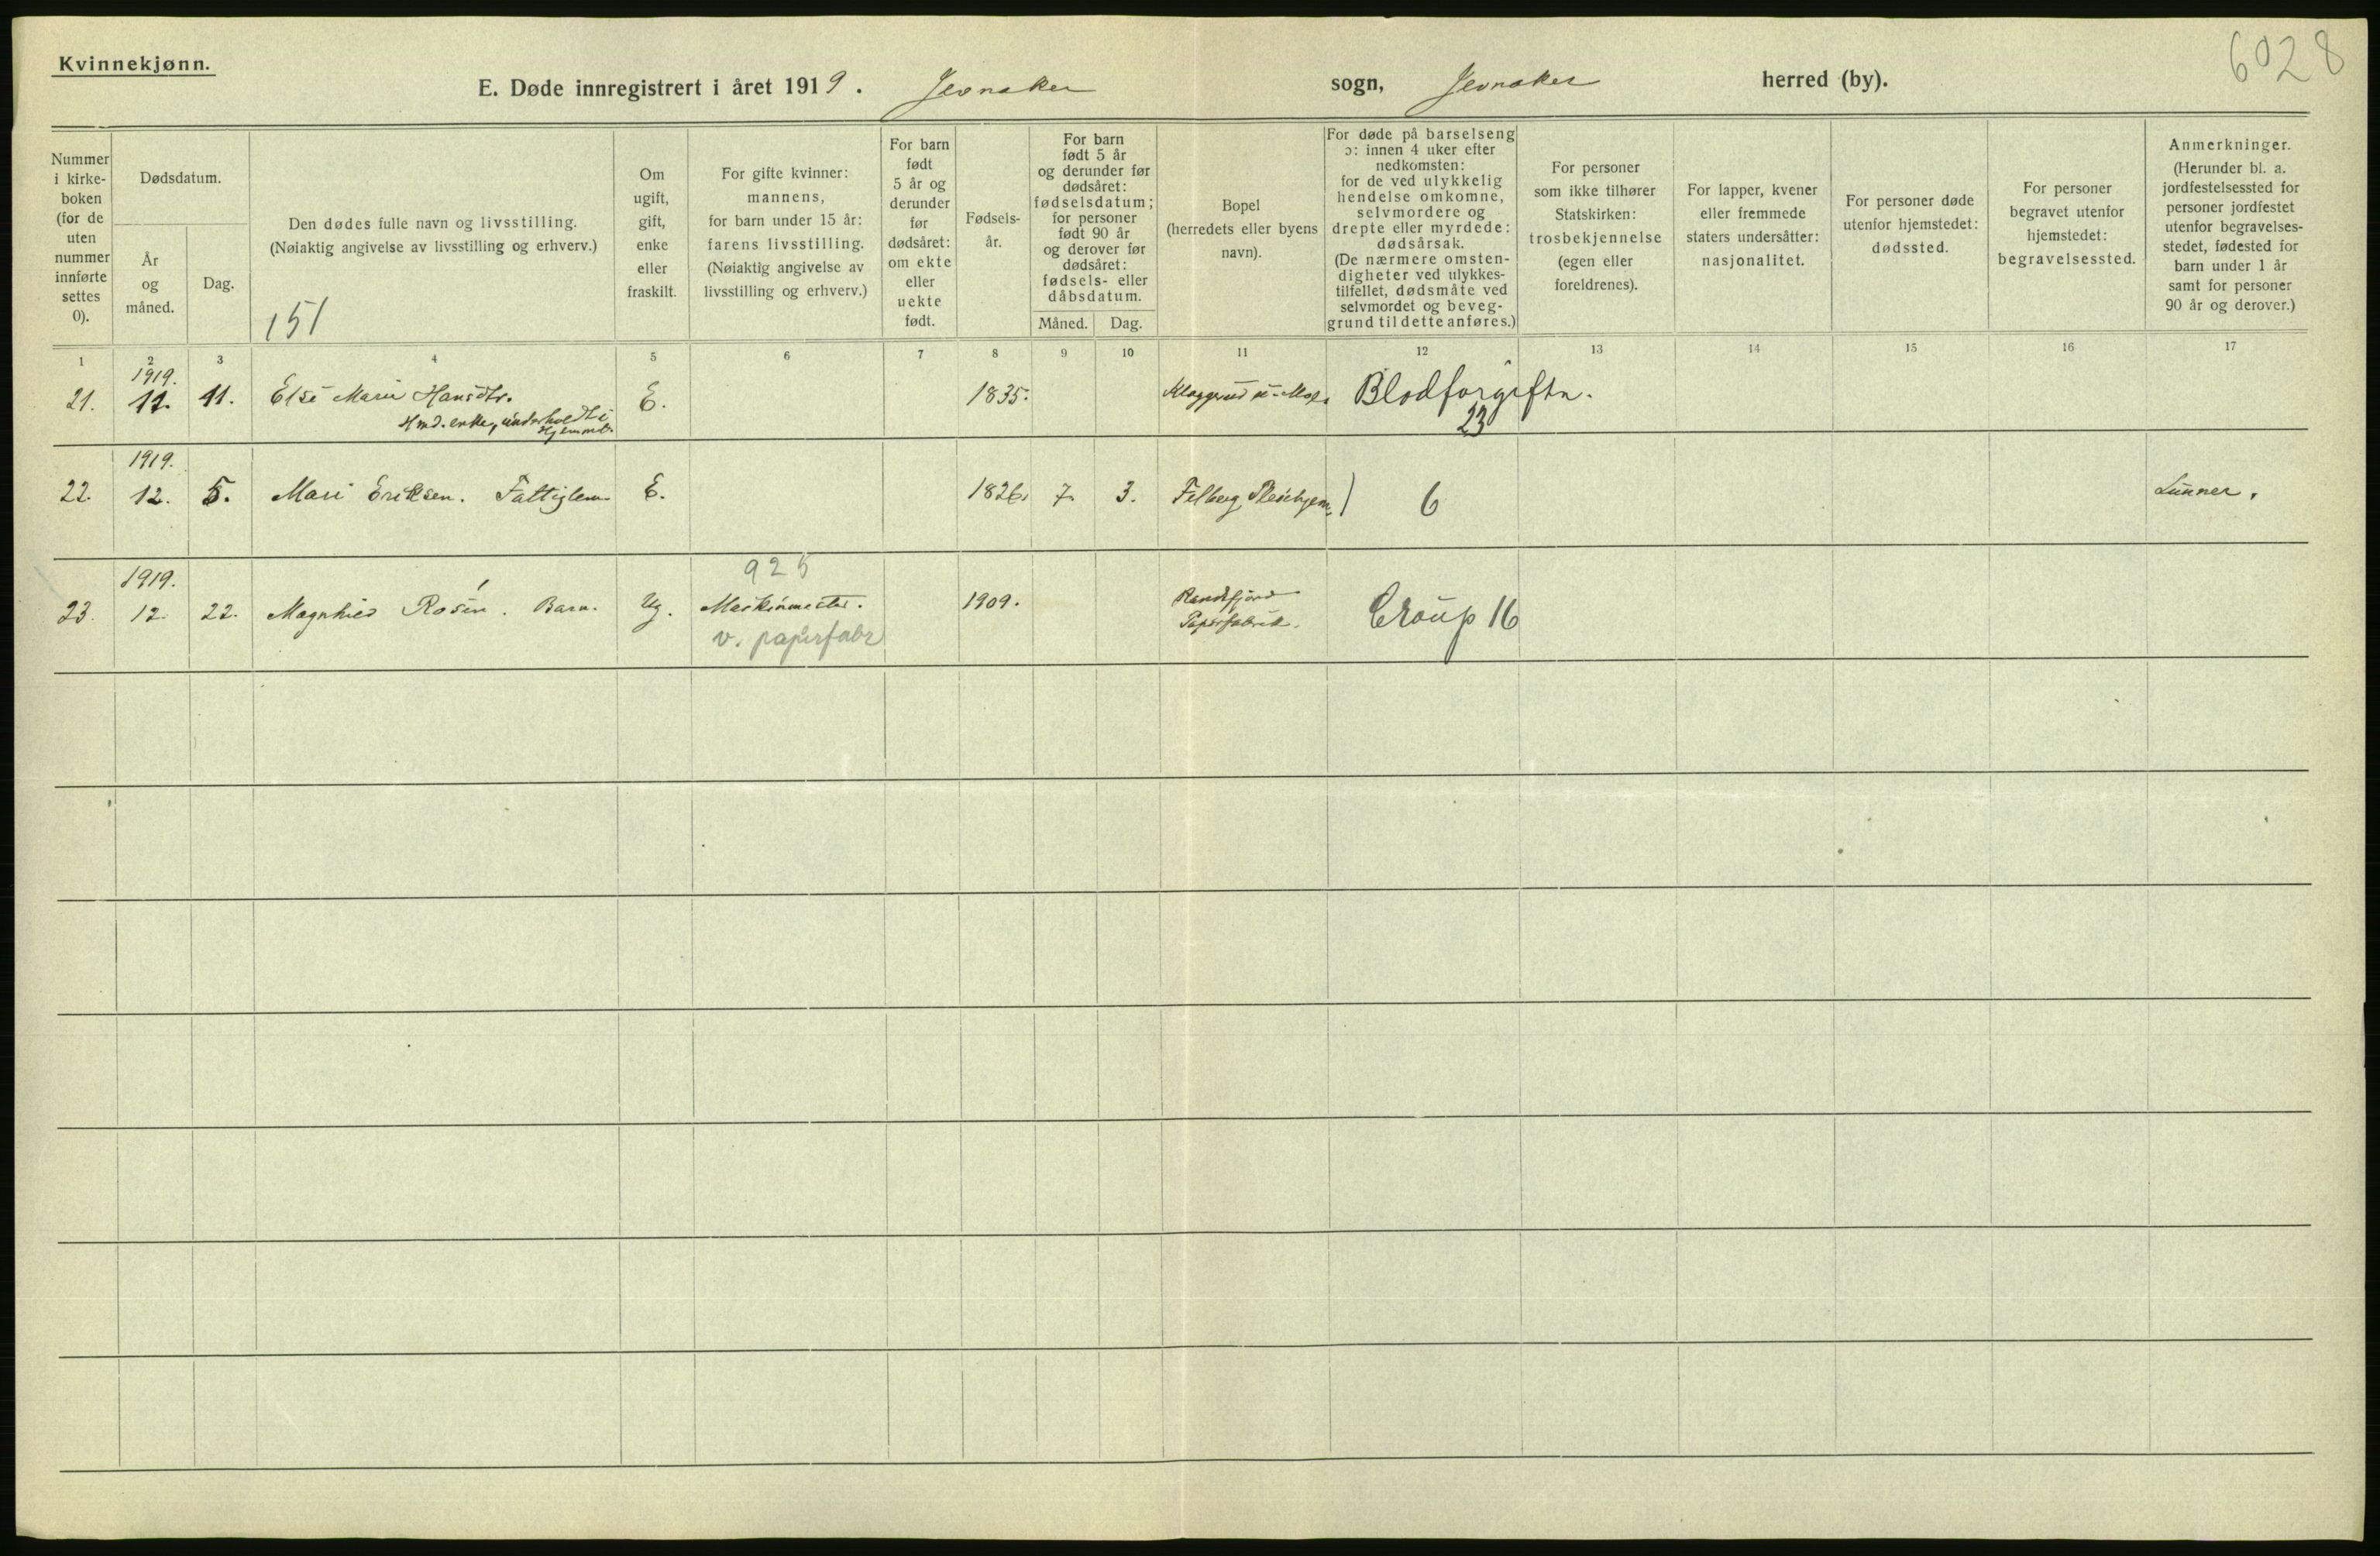 Kvinnekjønn.
6028
E. Døde innregistrert i året 1919. Jevnaker sogn, Jevnaker herred (by).
Nummer i kirke- boken (for de uten nummer innførte settes 0).
Dødsdatum.
År og måned.
Dag.
Den dødes fulle navn og livsstilling.
(Nøiaktig angivelse av livsstilling og erhverv.)
151
Om ugift, gift, enke eller fraskilt.
For gifte kvinner: mannens, for barn under 15 år: farens livsstilling. (Nøiaktig angivelse av livsstilling og erhverv.)
For barn født 5 år og derunder før dødsåret: om ekte eller uekte født.
Fødsels- år.
For barn født 5 år og derunder før dødsåret: fødselsdatum; for personer født 90 år og derover før dødsåret: fødsels- eller dåbsdatum.
Måned.
Dag.
Bopel (herredets eller byens navn).
For døde på barselseng ɔ: innen 4 uker efter nedkomsten: for de ved ulykkelig hendelse omkomne, selvmordere og drepte eller myrdede: dødsårsak. (De nærmere omsten- digheter ved ulykkes- tilfellet, dødsmåte ved selvmordet og beveg- grund til dette anføres.)
For personer som ikke tilhører Statskirken: trosbekjennelse (egen eller foreldrenes).
For lapper, kvener eller fremmede staters undersåtter: nasjonalitet.
For personer døde utenfor hjemstedet: dødssted.
For personer begravet utenfor hjemstedet: begravelsessted.
Anmerkninger. (Herunder bl. a. jordfestelsessted for personer jordfestet utenfor begravelses- stedet, fødested for barn under 1 år samt for personer 90 år og derover.)
1 2 3 4 5 6 7 8 9 10 11 12 13 14 15 16 17
1919.
21. 11. Else Marie Hansdtr. E. 1835. Blodforgiftn.
Hmd. enke,
23
1919.
22. 12. 5. Mari Eriksen. Fattiglem E. 1826. 7. 3. Pleiehjem. 6 Lunner.
925
1919.
23. 12. 22. Magnhild Rosén. Barn. Ug. Maskinmester. 1909. Randsfjord Papirfabrik. Croup 16
v. papirfabr